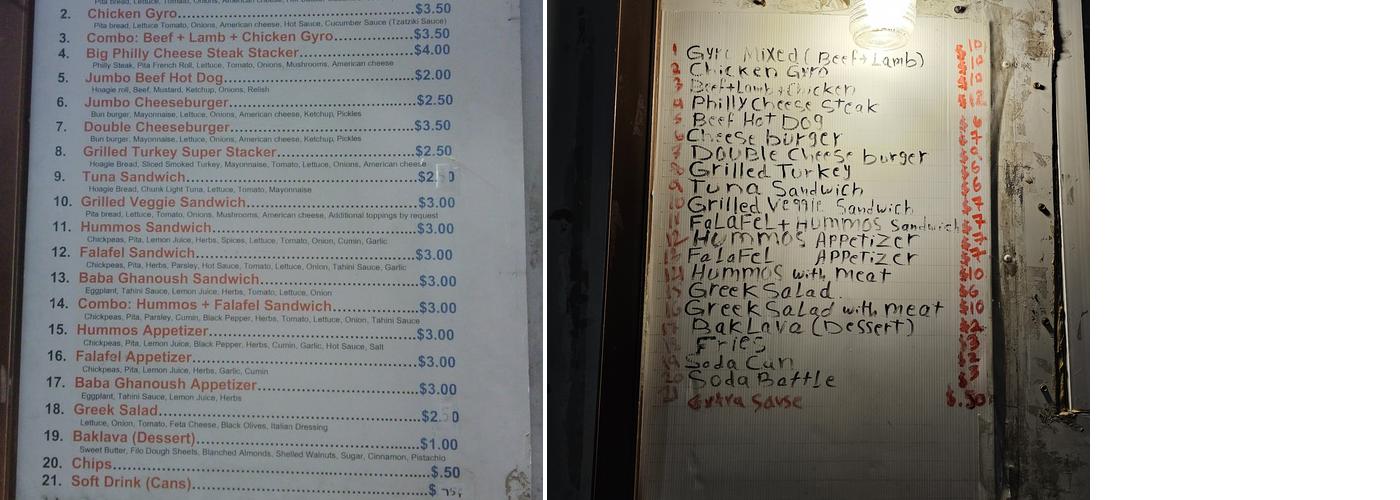 Pita bread, Lettuce, Tomato, Onions, American cheese, Hot Sauce, Cucumber Sauce (Tzatziki Sauce)
2. Chicken Gyro $3.50
Pita bread, Lettuce Tomato, Onions, American cheese, Hot Sauce, Cucumber Sauce (Tzatziki Sauce)
3. Combo: Beef + Lamb + Chicken Gyro $3.50
4. Big Philly Cheese Steak Stacker $4.00
Philly Steak, Pita French Roll, Lettuce, Tomato, Onions, Mushrooms, American cheese
5. Jumbo Beef Hot Dog $2.00
Hoagie roll, Beef, Mustard, Ketchup, Onions, Relish
6. Jumbo Cheeseburger $2.50
Bun burger, Mayonnaise, Lettuce, Onions, American cheese, Ketchup, Pickles
7. Double Cheeseburger $3.50
Bun burger, Mayonnaise, Lettuce, Onions, American cheese, Ketchup, Pickles
8. Grilled Turkey Super Stacker $2.50
Hoagie Bread, Sliced Smoked Turkey, Mayonnaise, Tomato, Lettuce, Onions, American cheese
9. Tuna Sandwich
Hoagie Bread, Chunk Light Tuna, Lettuce, Tomato, Mayonnaise
10. Grilled Veggie Sandwich $3.00
Pita bread, Lettuce, Tomato, Onions, Mushrooms, American cheese, Additional toppings by request
11. Hummos Sandwich $3.00
Chickpeas, Pita, Lemon Juice, Herbs, Spices, Lettuce, Tomato, Onion, Cumin, Garlic
12. Falafel Sandwich $3.00
Chickpeas, Pita, Herbs, Parsley, Hot Sauce, Tomato, Lettuce, Onion, Tahini Sauce, Garlic
13. Baba Ghanoush Sandwich $3.00
Eggplant, Tahini Sauce, Lemon Juice, Herbs, Tomato, Lettuce, Onion
14. Combo: Hummos + Falafel Sandwich $3.00
Chickpeas, Pita, Parsley, Cumin, Black Pepper, Herbs, Tomato, Lettuce, Onion, Tahini Sauce
15. Hummos Appetizer $3.00
Chickpeas, Pita, Lemon Juice, Black Pepper, Herbs, Cumin, Garlic, Hot Sauce, Salt
16. Falafel Appetizer $3.00
Chickpeas, Pita, Lemon Juice, Herbs, Garlic, Cumin
17. Baba Ghanoush Appetizer $3.00
Eggplant, Tahini Sauce, Lemon Juice, Herbs
18. Greek Salad $2.50
Lettuce, Onion, Tomato, Feta Cheese, Black Olives, Italian Dressing
19. Baklava (Dessert) $1.00
Sweet Butter, Filo Dough Sheets, Blanched Almonds, Shelled Walnuts, Sugar, Cinnamon, Pistachio
20. Chips $.50
21. Soft Drink (Cans) $.75
1 Gyro Mixed (Beef+Lamb) $10
2 Chicken Gyro $10
3 Beef+Lamb+Chicken $10
4 Philly Cheese Steak $12
5 Beef Hot Dog 6
Cheese burger 7
Double Cheese burger
Grilled Turkey 6
9 Tuna Sandwich 6
Grilled Veggie Sandwich 7
FaLaFeL + Hummos Sandwich 7
Hummos Appetizer 7
FaLaFeL Appetizer 7
Hummos with meat $10
Greek Salad $6
Greek Salad with meat $10
BakLava (Dessert)
Fries
Soda Can
Soda Battle $3
Extra Sause $.50